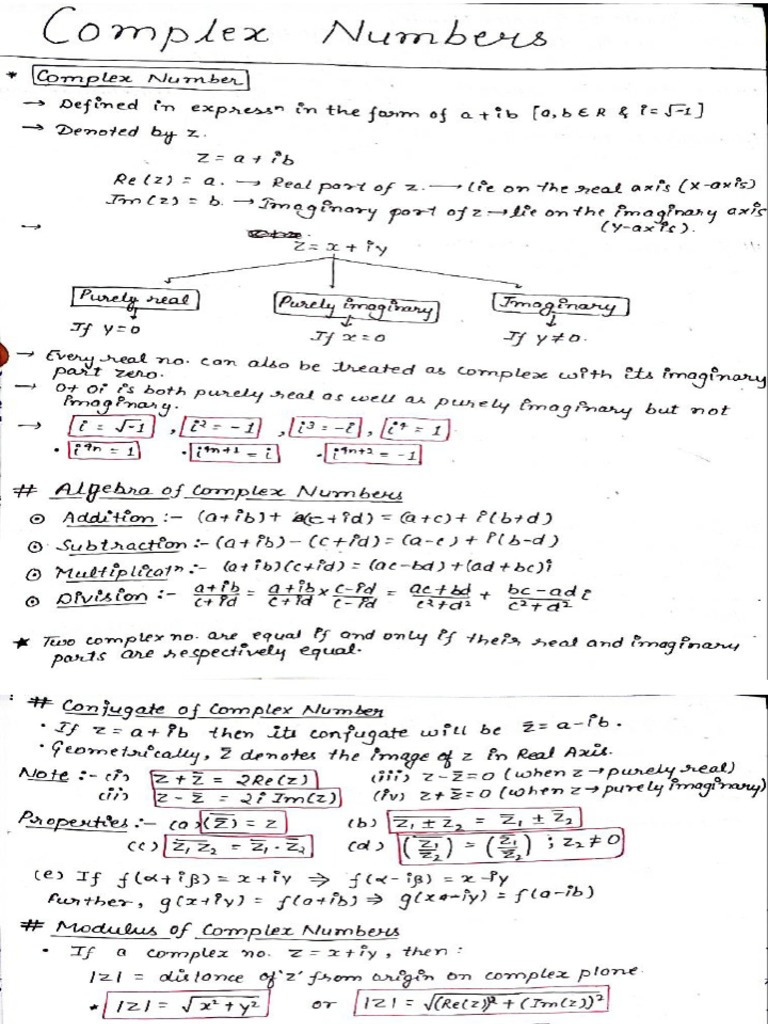 Complex Numbers
* Complex Number
→ Defined in expressⁿ in the form of a+ib [a,b∈R & i=√-1]
→ Denoted by z.
z = a+ib
Re(z) = a. → Real part of z. → lie on the real axis (x-axis)
Im(z) = b. → Imaginary part of z → lie on the imaginary axis
(y-axis).
→ z = x+iy
Purely real Purely imaginary Imaginary
If y=0 If x=0 If y≠0.
→ Every real no. can also be treated as complex with its imaginary
part zero.
→ 0+0i is both purely real as well as purely imaginary but not
imaginary.
→ i = √-1 , i² = -1 , i³ = -i , i⁴ = 1
• i⁴ⁿ = 1 • i⁴ⁿ⁺¹ = i • i⁴ⁿ⁺² = -1
# Algebra of Complex Numbers
⊙ Addition :- (a+ib)+(c+id) = (a+c)+i(b+d)
⊙ Subtraction :- (a+ib)-(c+id) = (a-c)+i(b-d)
⊙ Multiplicatⁿ :- (a+ib)(c+id) = (ac-bd)+(ad+bc)i
⊙ Division :- a+ib/c+id = a+ib/c+id × c-id/c-id = ac+bd/c²+d² + bc-ad/c²+d² i
★ Two complex no. are equal if and only if their real and imaginary
parts are respectively equal.
# Conjugate of Complex Number
• If z = a+ib then its conjugate will be z̄ = a-ib.
• Geometrically, z̄ denotes the image of z in Real Axis.
Note :- (i) z+z̄ = 2Re(z) (iii) z-z̄=0 (when z→purely real)
(ii) z-z̄ = 2i Im(z) (iv) z+z̄=0 (when z→purely imaginary)
Properties :- (a) (z̄)‾ = z (b) z₁±z₂‾ = z̄₁ ± z̄₂
(c) z₁z₂‾ = z̄₁.z̄₂ (d) (z₁/z₂)‾ = (z̄₁/z̄₂) ; z₂≠0
(e) If f(α+iβ) = x+iy ⇒ f(α-iβ) = x-iy
further, g(x+iy) = f(a+ib) ⇒ g(x-iy) = f(a-ib)
# Modulus of Complex Numbers
• If a complex no. z = x+iy, then :
|z| = distance of 'z' from origin on complex plane.
* |z| = √x²+y² or |z| = √(Re(z))²+(Im(z))²